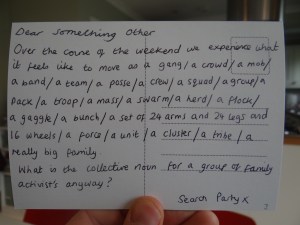 Dear Something Other
Over the course of the weekend we experience what
it feels like to move as a gang/a crowd/a mob/
a band/a team/a posse/a crew/a squad/a group/a
pack/a troop/a mass/a swarm/a herd/a flock/
a gaggle/a bunch/a set of 24 arms and 24 legs and
16 wheels/a force/a unit/a cluster/a tribe/a
really big family.
What is the collective noun for a group of family
activist's anyway?
Search Party x